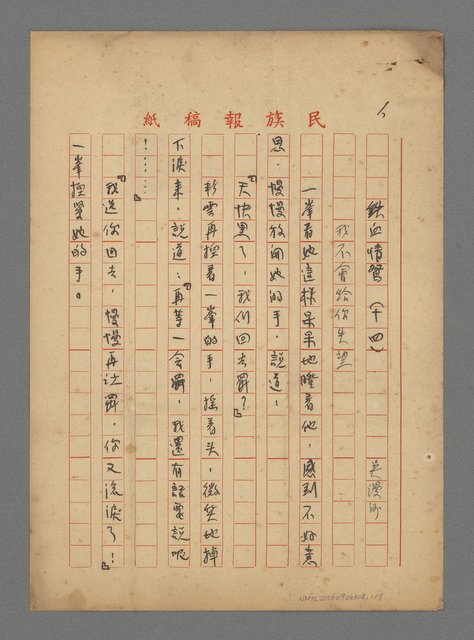 民族報稿紙
鐵血情鴛(十四) 吳漫沙
我不會給你失望
一峯看她這樣呆呆地瞪着他，感到不好意
思，慢慢放開她的手，說道：
『天快黑了，我们回去罷？』
彩雲再握着一峯的手，搖着頭，微笑地掉
下淚來，說道：『再等一會罷，我還有話要說呢
！……』
『我送你回去，慢慢再談罷，你又流淚了！』
一峯握緊她的手。